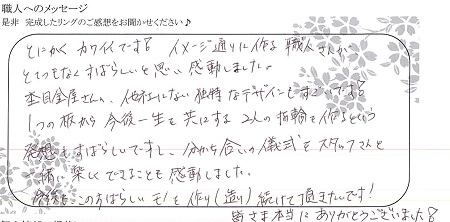 職人へのメッセージ
是非 完成したリングのご感想をお聞かせください♪
とにかく カワイイです! イメージ通りに作る 職人さんが、
とてつもなくすばらしいと思い 感動しました。
杢目金屋さんの、他社にない 独特なデザインもすごいです!
1つの板から 今後一生を共にする 2人の指輪を作るという
発想もすばらしいですし、分かち合いの儀式をスタッフさんと
一緒に楽しくできることも感動しました。
今後も、このすばらしいモノを作り(造り)続けて頂きたいです!
皆さま本当に ありがとうございました!